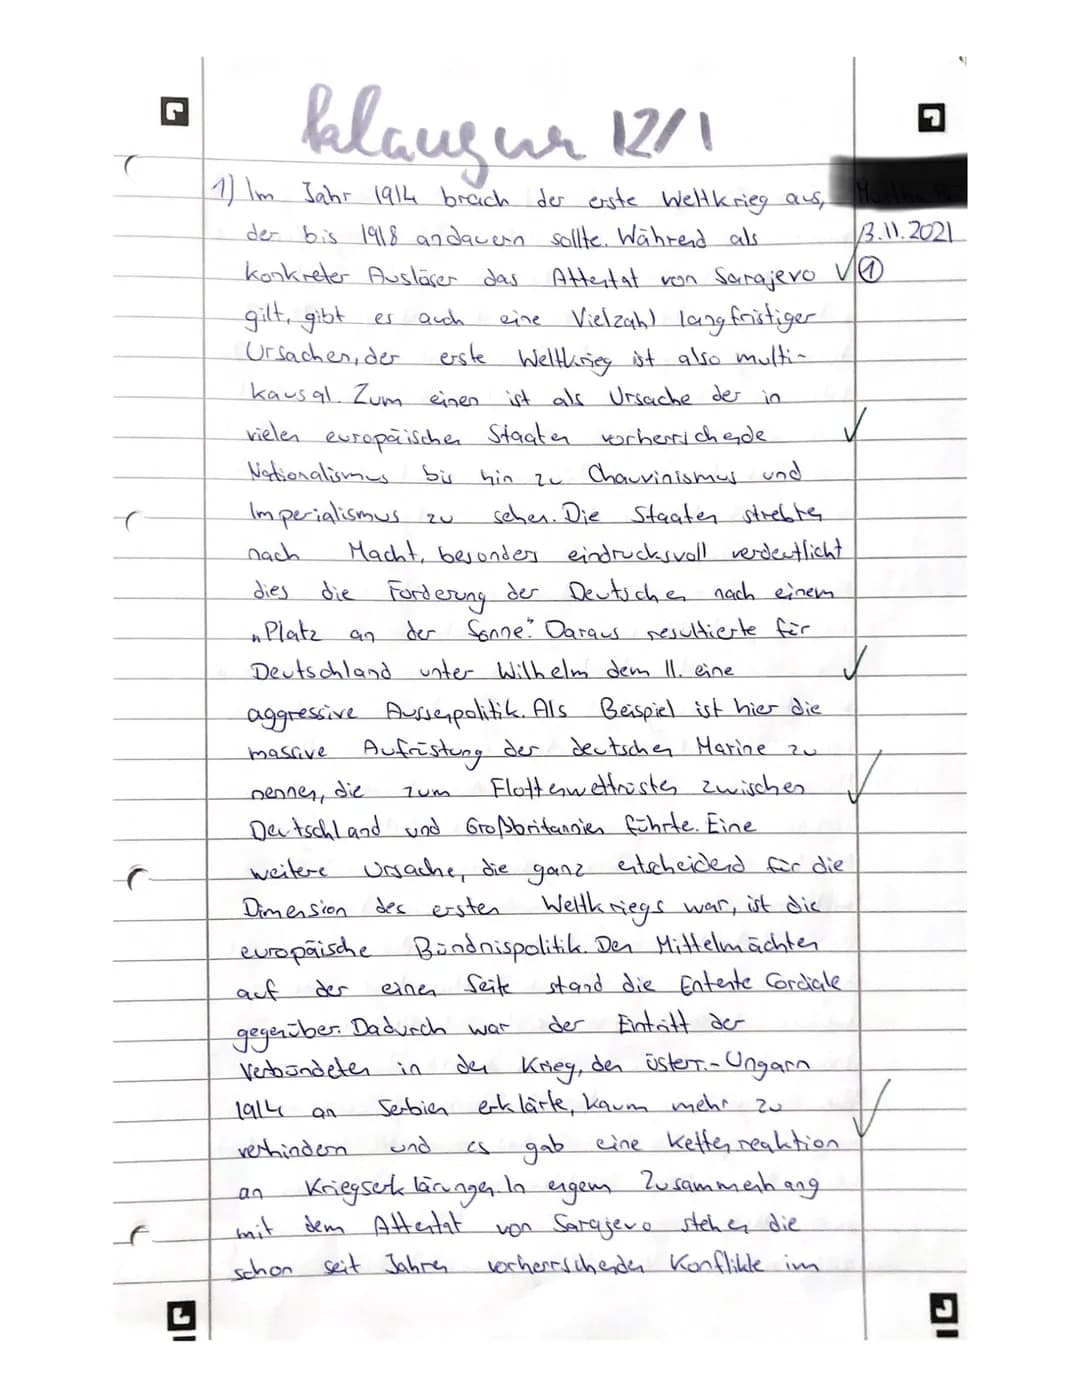 Klausur 12/1
1) Im Jahr 1914 brach der erste Weltkrieg aus,
der bis 1918 andauern sollte. Während als 13.11.2021
konkreter Auslöser das Attentat von Sarajevo ✓①
gilt, gibt es auch eine Vielzahl langfristiger
Ursachen, der erste Weltkrieg ist also multi-
kausal. Zum einen ist als Ursache der in
vielen europäischen Staaten vorherrschende ✓
Nationalismus bis hin zu Chauvinismus und
Imperialismus zu sehen. Die Staaten strebten
nach Macht, besonders eindrucksvoll verdeutlicht
dies die Forderung der Deutschen nach einem
„Platz an der Sonne". Daraus resultierte für
Deutschland unter Wilhelm dem II. eine ✓
aggressive Aussenpolitik. Als Beispiel ist hier die
massive Aufrüstung der deutschen Marine zu
nennen, die zum Flottenwettrüsten zwischen ✓
Deutschland und Großbritannien führte. Eine
weitere Ursache, die ganz entscheidend für die
Dimension des ersten Weltkriegs war, ist die
europäische Bündnispolitik. Den Mittelmächten
auf der einen Seite stand die Entente Cordiale
gegenüber. Dadurch war der Eintritt der
Verbündeten in den Krieg, den Österr.-Ungarn
1914 an Serbien erklärte, kaum mehr zu ✓
verhindern und es gab eine Kettenreaktion
an Kriegserklärungen. In engem Zusammenhang
mit dem Attentat von Sarajevo stehen die
schon seit Jahren vorherrschenden Konflikte im